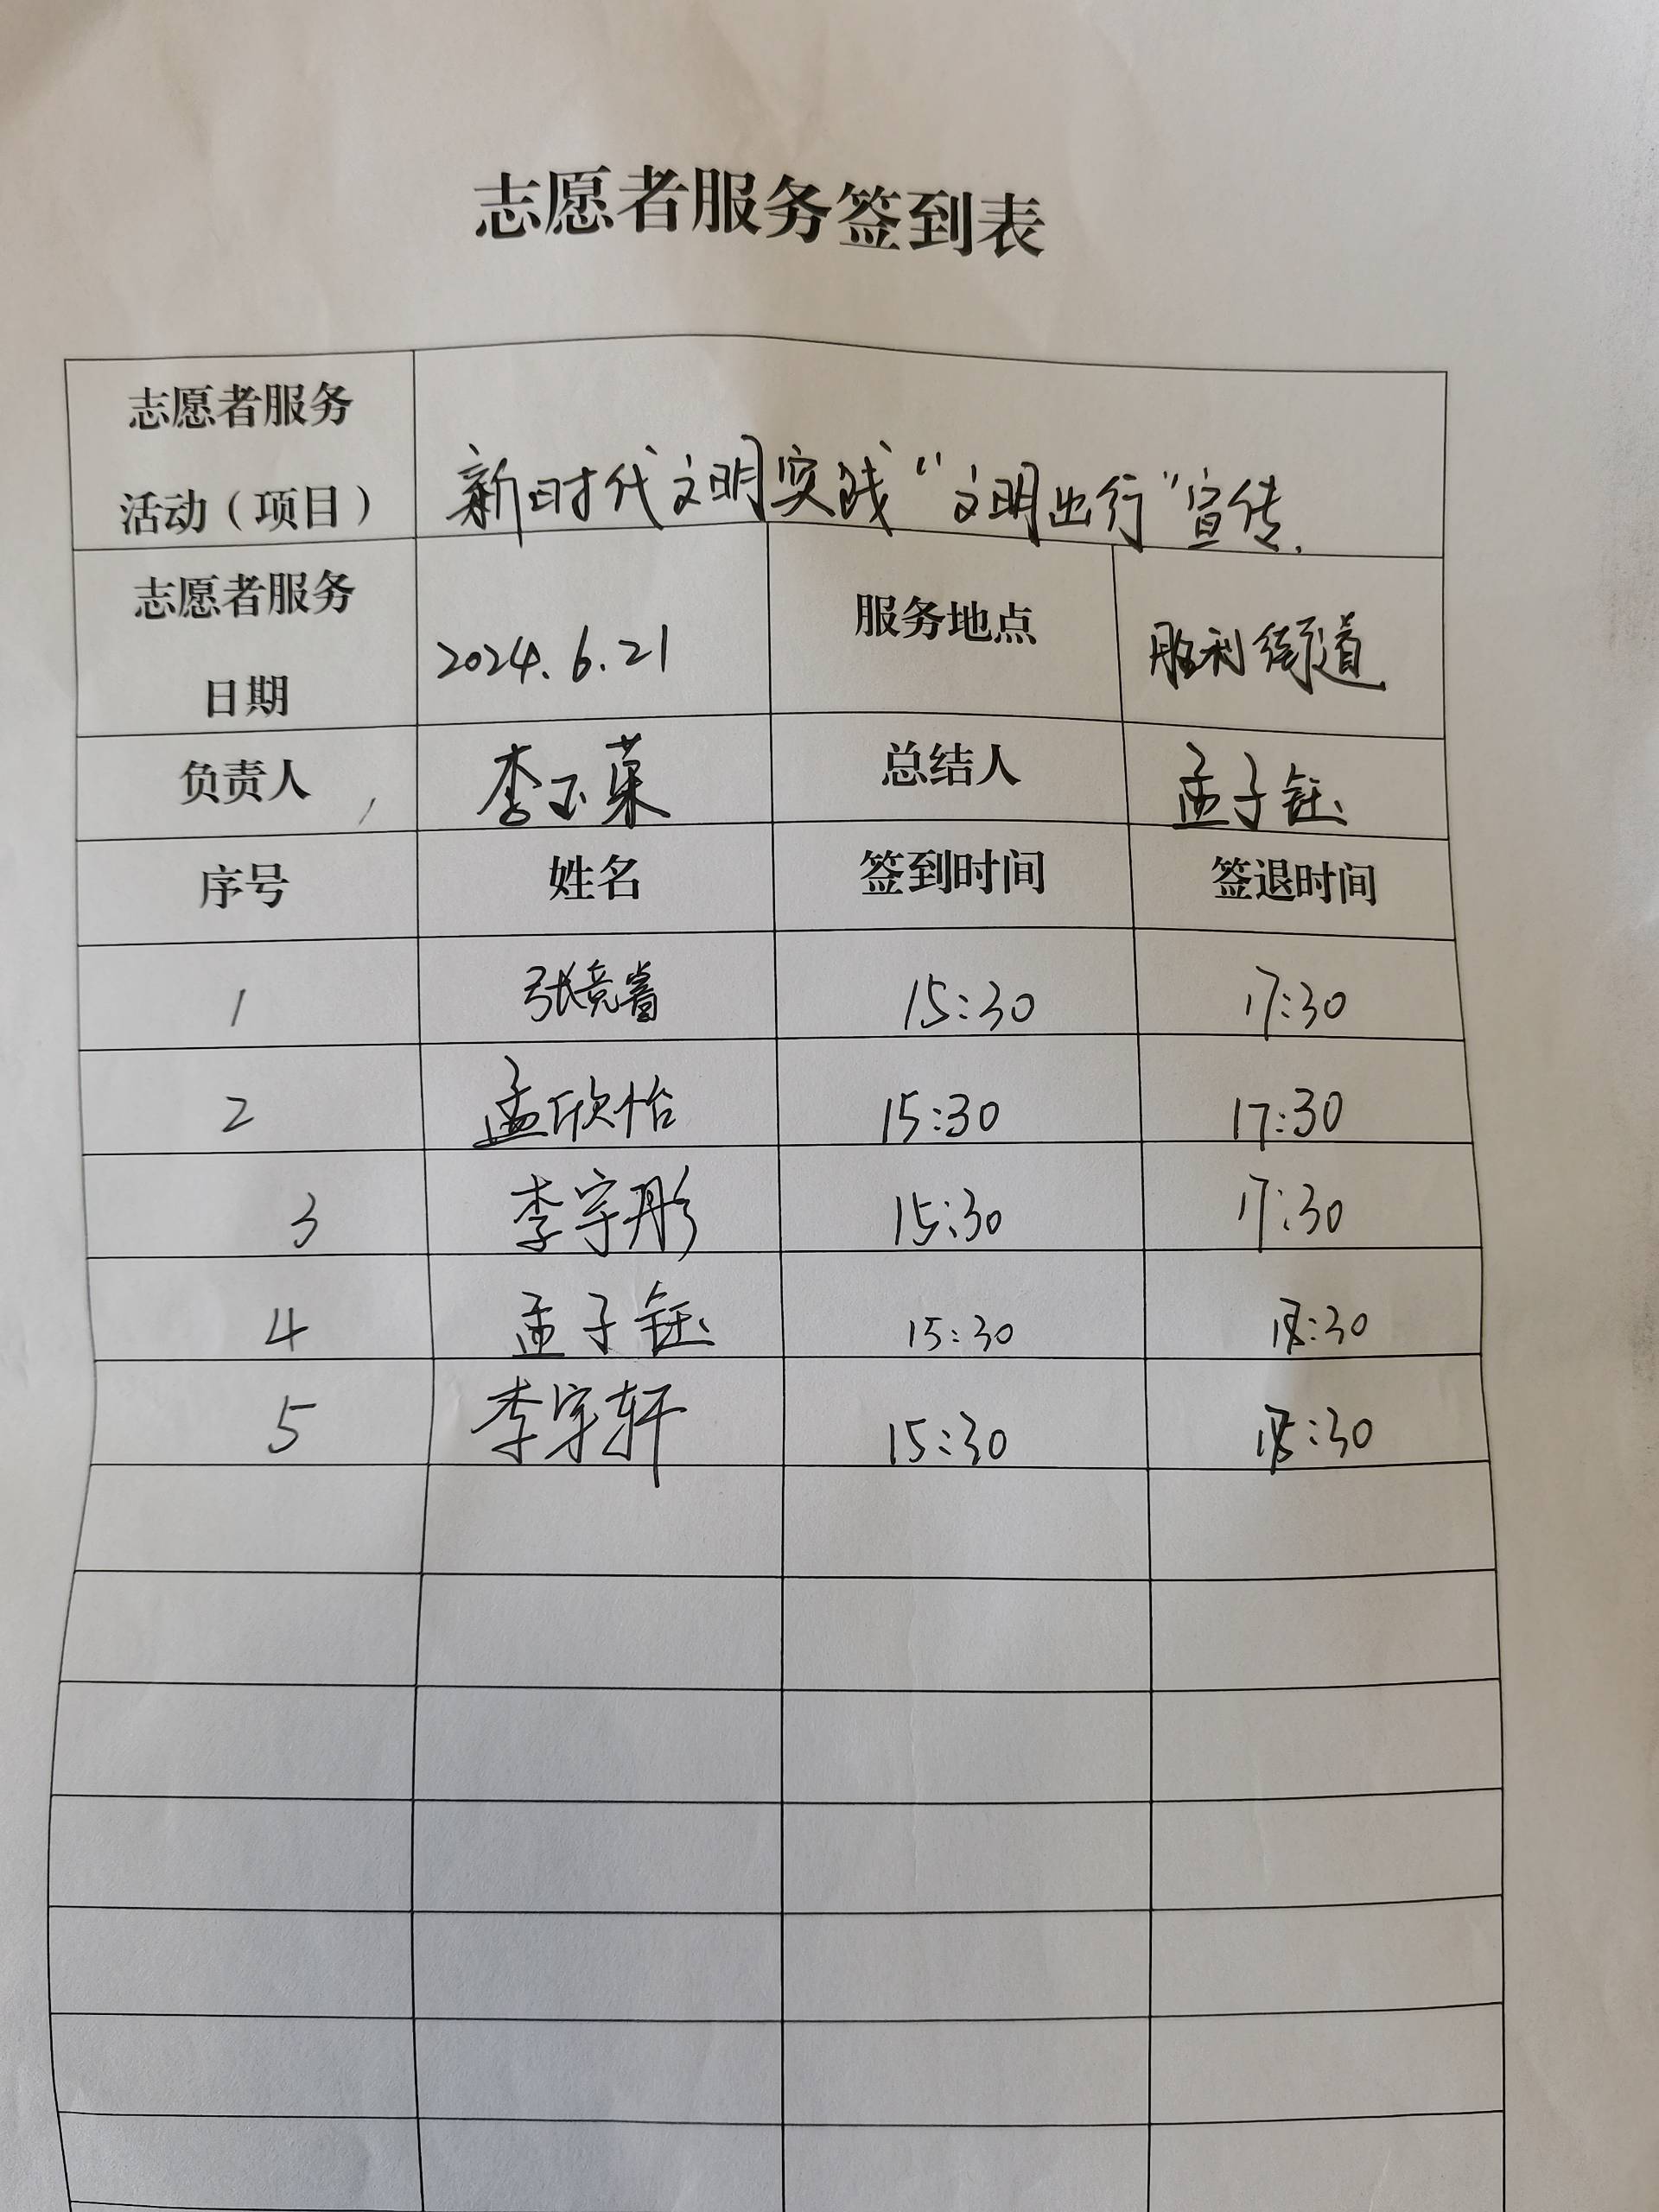 志愿者服务签到表
志愿者服务
活动（项目）
新时代文明实践“文明出行”宣传.
志愿者服务
日期
2024.6.21
服务地点
胜利街道
负责人
李玉菓
总结人
孟子钰
序号 姓名 签到时间 签退时间
1 张竞睿 15:30 17:30
2 孟欣怡 15:30 17:30
3 李宇彤 15:30 17:30
4 孟子钰 15:30
5 李宇轩 15:30